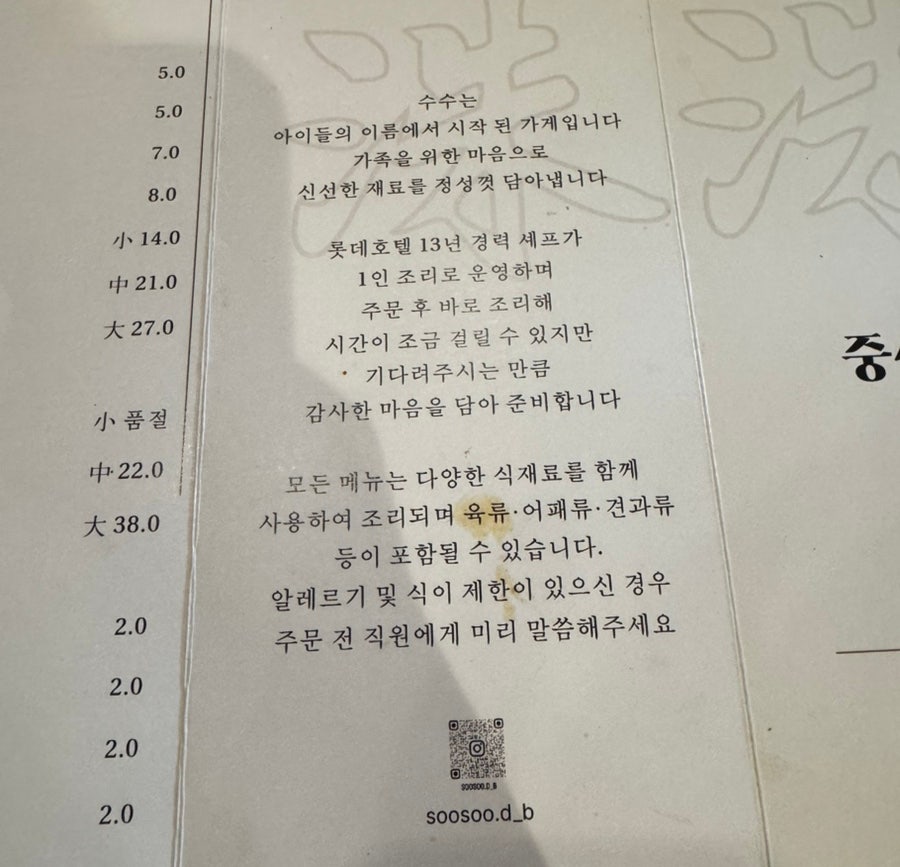 5.0
5.0
7.0
8.0
小 14.0
中 21.0
大 27.0
小 품절
中 22.0
大 38.0
2.0
2.0
2.0
2.0
수수는
아이들의 이름에서 시작 된 가게입니다
가족을 위한 마음으로
신선한 재료를 정성껏 담아냅니다
롯데호텔 13년 경력 셰프가
1인 조리로 운영하며
주문 후 바로 조리해
시간이 조금 걸릴 수 있지만
기다려주시는 만큼
감사한 마음을 담아 준비합니다
모든 메뉴는 다양한 식재료를 함께
사용하여 조리되며 육류·어패류·견과류
등이 포함될 수 있습니다.
알레르기 및 식이 제한이 있으신 경우
주문 전 직원에게 미리 말씀해주세요
SOOSOO.D_B
soosoo.d_b
중